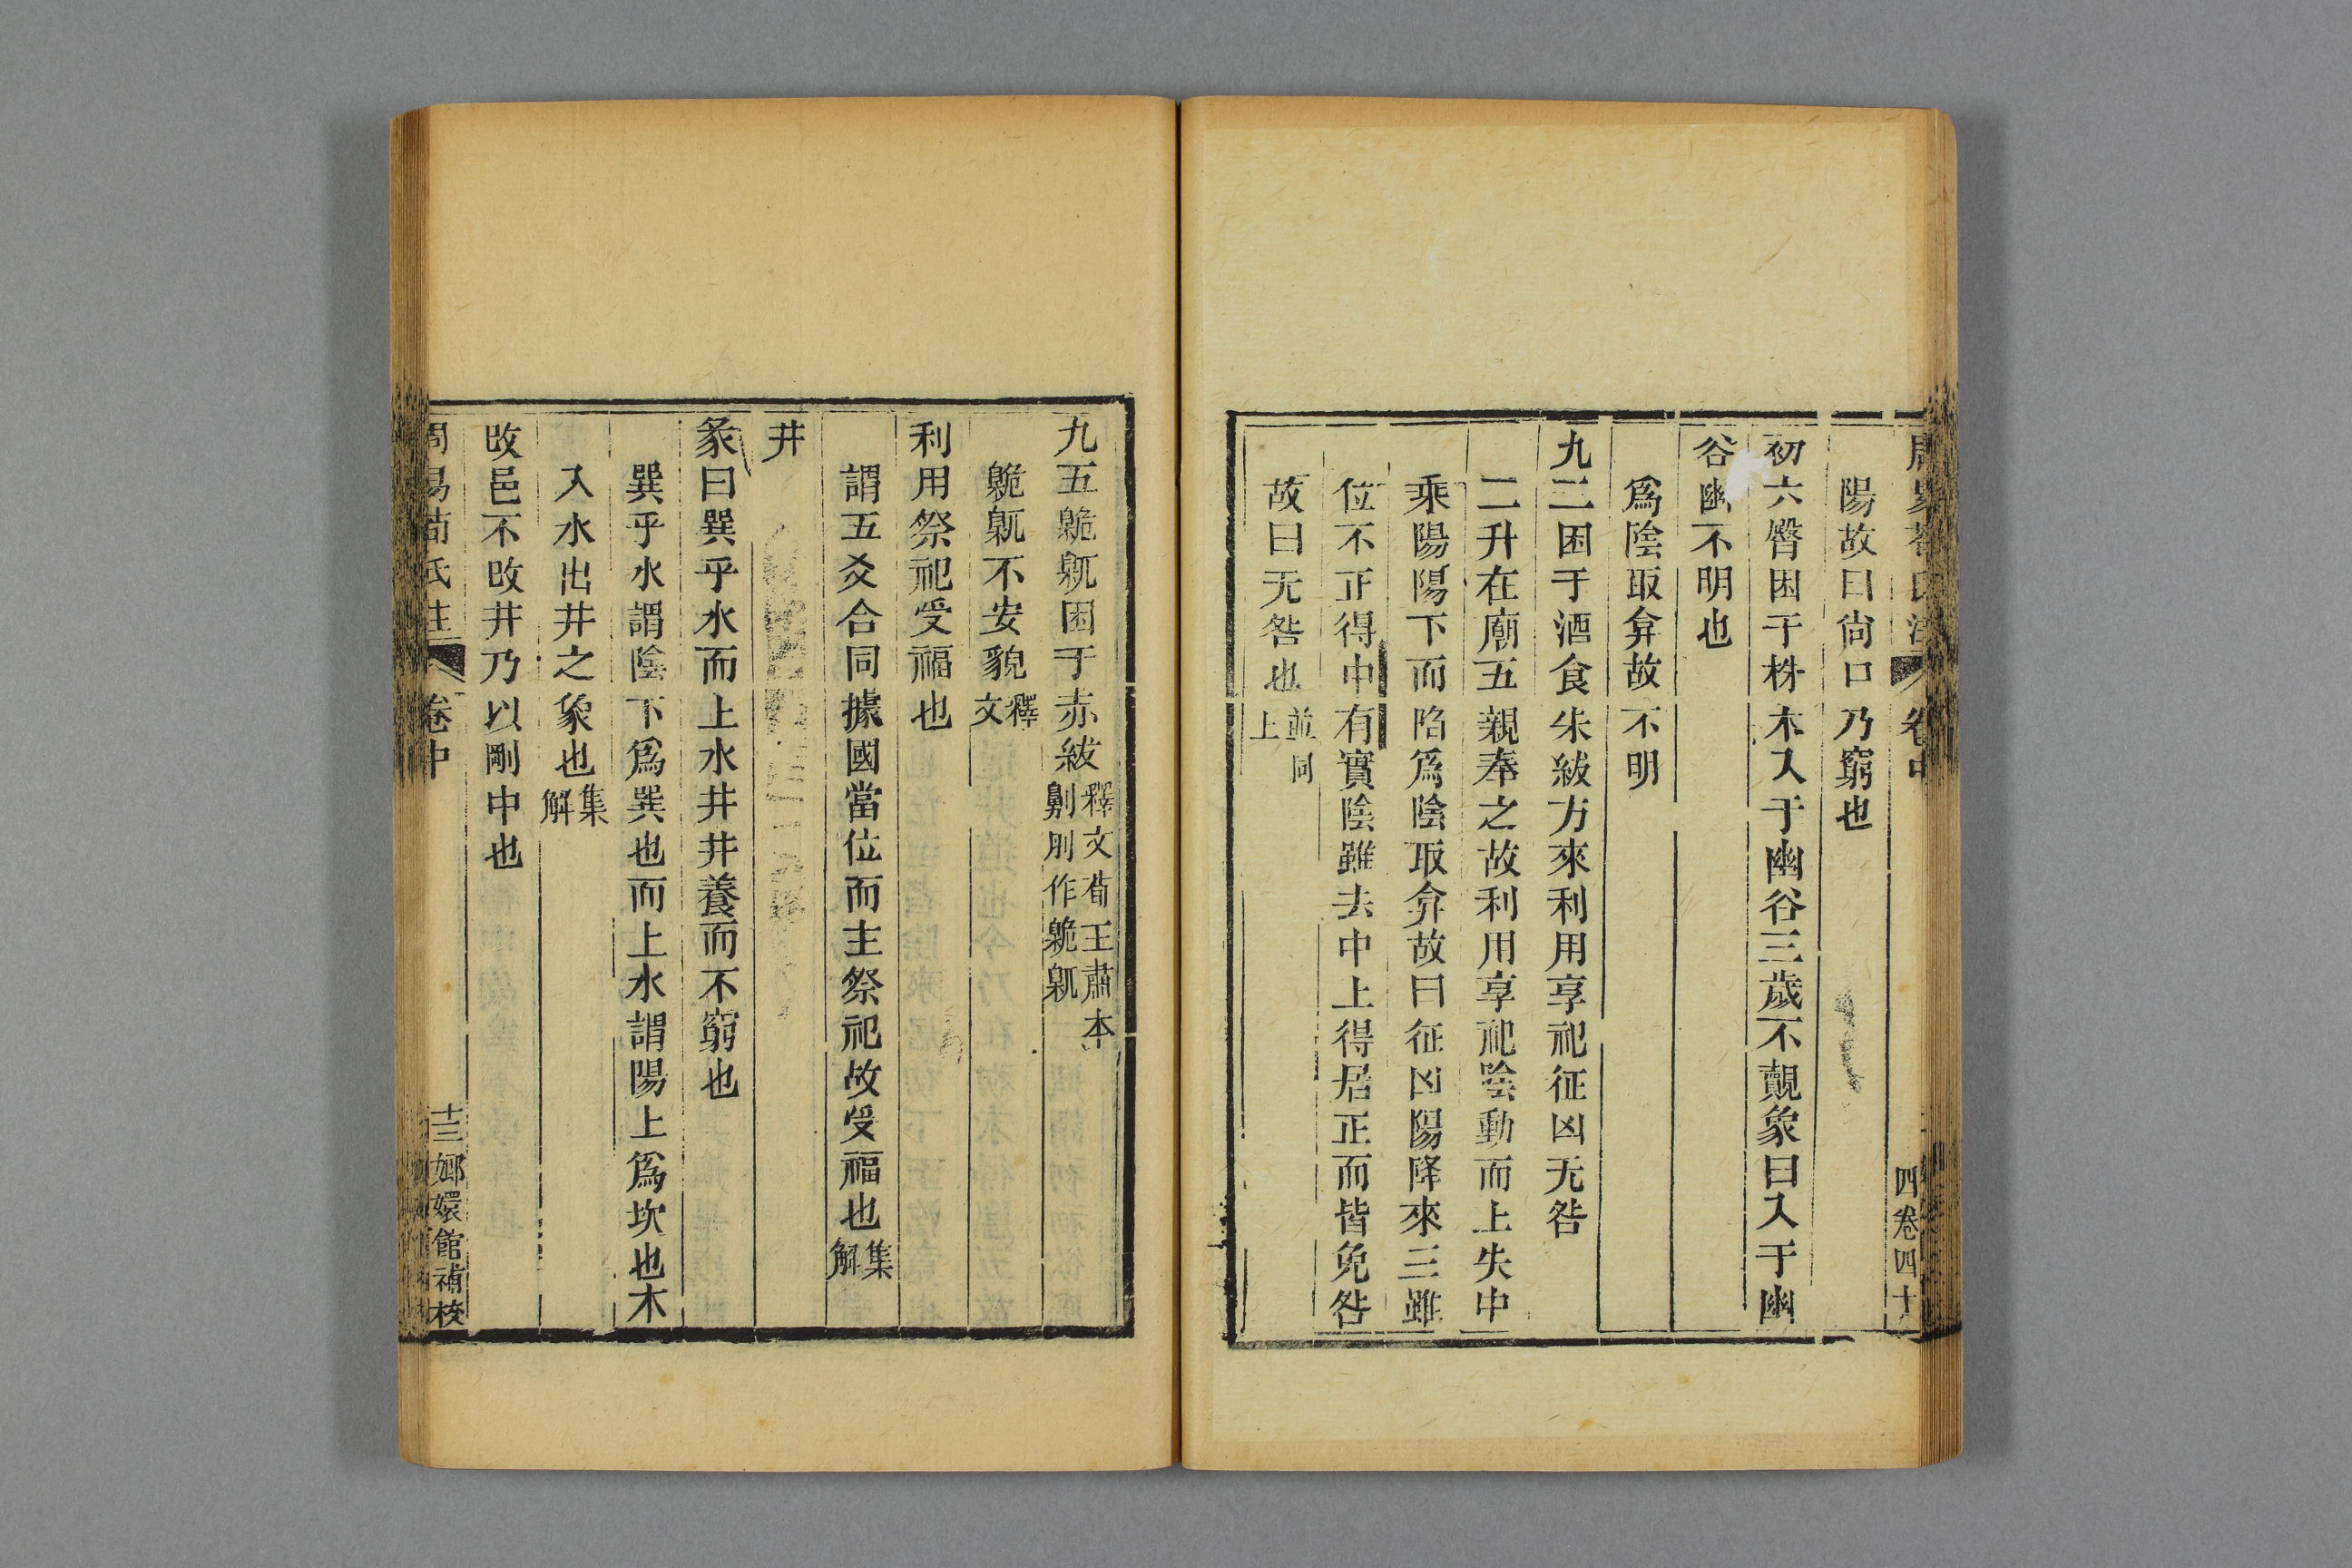 周易荀氏注 卷中 四卷四十
陽故曰尙口乃窮也
初六臀困于株木入于幽谷三歲不覿象曰入于幽
谷幽不明也
爲陰取弇故不明
九二困于酒食朱紱方來利用享祀征凶无咎
二升在廟五親奉之故利用享祀陰動而上失中
乘陽陽下而陷爲陰取弇故曰征凶陽降來三雖
位不正得中有實陰雖去中上得居正而皆免咎
故曰无咎也並同上
九五臲㓷困于赤紱釋文荀王肅本劓刖作臲㓷
臲㓷不安貌釋文
利用祭祀受福也
謂五爻合同據國當位而主祭祀故受福也集解
井
彖曰巽乎水而上水井井養而不窮也
巽乎水謂陰下爲巽也而上水謂陽上爲坎也木
入水出井之象也集解
改邑不改井乃以剛中也
周易荀氏注 卷中 十三 嫏嬛館補校